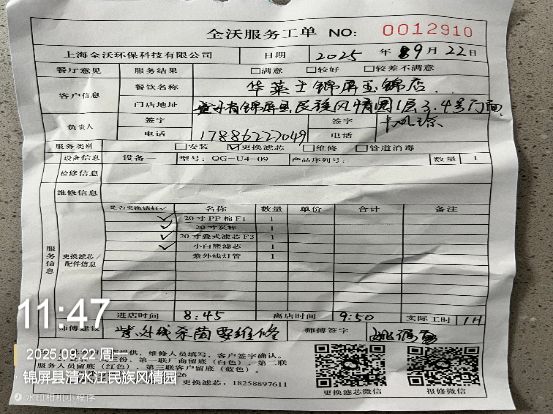 金沃服务工单 NO: 0012910
上海金沃环保科技有限公司 日期 2025 年 9月 22 日
餐厅意见 服务结果 □满意 □较好 □较差不满意
客户信息 餐饮名称 华莱士锦屏玉锦店
门店地址 锦屏县民族风情园1层3.4号门面
负责人 签字 签字
电话 17886227049 电话
服务类别 □安装 ☑更换滤芯 □维修 □管道消毒
设备信息 设备一 型号: QG-U4-09 产品序列号: 数量 1
检修信息
维修信息
服务信息 更换滤芯/配件信息
是否更换请打√ 名称 数量 单价 合计 备注
✓ 20寸PP棉F1 1
20寸炭棒 1
✓ 20寸叠式滤芯F3 1
✓ 小白熊滤芯 1
紫外线灯管 1
进店时间 8:45 离店时间 9:50 实际工时 1H
师傅建议 紫外线杀菌要维修 师傅签字
维修人员填写,客户签字确认。
第二联
服务人员留底(红色)。第三联客户留底(蓝色)。
更换滤芯: 18258897611
更换滤芯微信 报修微信
11:47
2025.09.22 周一
锦屏县清水江民族风情园
水印相机小程序